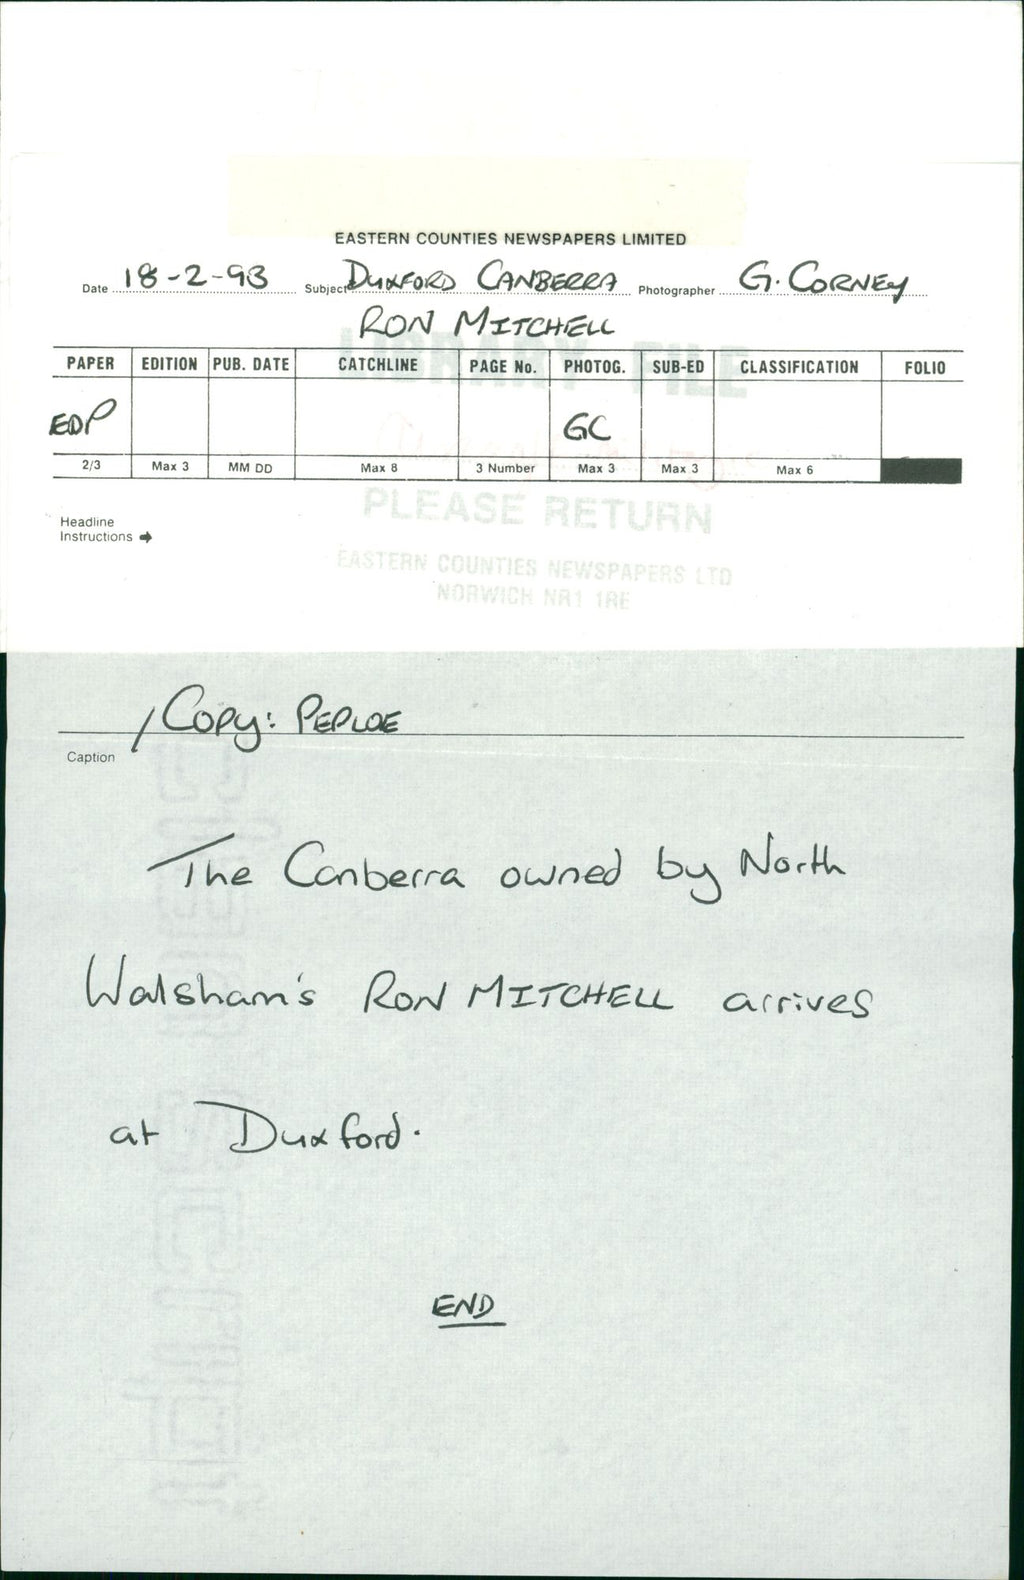 EASTERN COUNTIES NEWSPAPERS LIMITED
Date 18-2-93 Subject DUXFORD CANBERRA Photographer G. CORNEY
RON MITCHELL
LIBRARY FILE
PAPER EDITION PUB. DATE CATCHLINE PAGE No. PHOTOG. SUB-ED CLASSIFICATION FOLIO
EDP GC
2/3 Max 3 MM DD Max 8 3 Number Max 3 Max 3 Max 6
PLEASE RETURN
Headline
Instructions ➜
EASTERN COUNTIES NEWSPAPERS LTD
NORWICH NR1 1RE
/Copy: PEPLOE
Caption
The Canberra owned by North
Walsham's RON MITCHELL arrives
at Duxford.
END